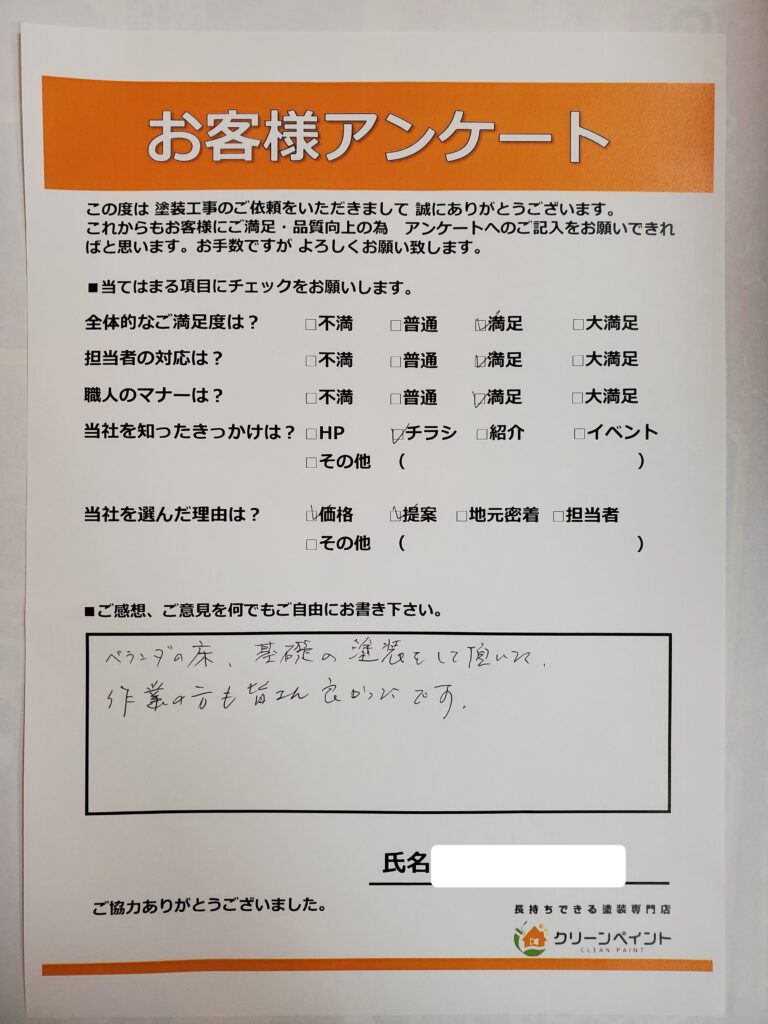 お客様アンケート
この度は 塗装工事のご依頼をいただきまして 誠にありがとうございます。
これからもお客様にご満足・品質向上の為　アンケートへのご記入をお願いできれ
ばと思います。お手数ですが よろしくお願い致します。
■当てはまる項目にチェックをお願いします。
全体的なご満足度は？ □不満 □普通 ☑満足 □大満足
担当者の対応は？ □不満 □普通 ☑満足 □大満足
職人のマナーは？ □不満 □普通 ☑満足 □大満足
当社を知ったきっかけは？ □HP ☑チラシ □紹介 □イベント
□その他 （ ）
当社を選んだ理由は？ ☑価格 ☑提案 □地元密着 □担当者
□その他 （ ）
■ご感想、ご意見を何でもご自由にお書き下さい。
ベランダの床、基礎の塗装をして頂いて、
作業の方も皆さん良かったです。
氏名
ご協力ありがとうございました。
長持ちできる塗装専門店
クリーンペイント
CLEAN PAINT